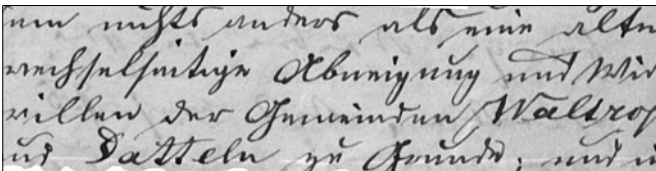 nichts anders als eine alte
wechselseitige Abneigung und Wi
willen der Gemeinden Waltrop
und Datteln zu Grunde, und